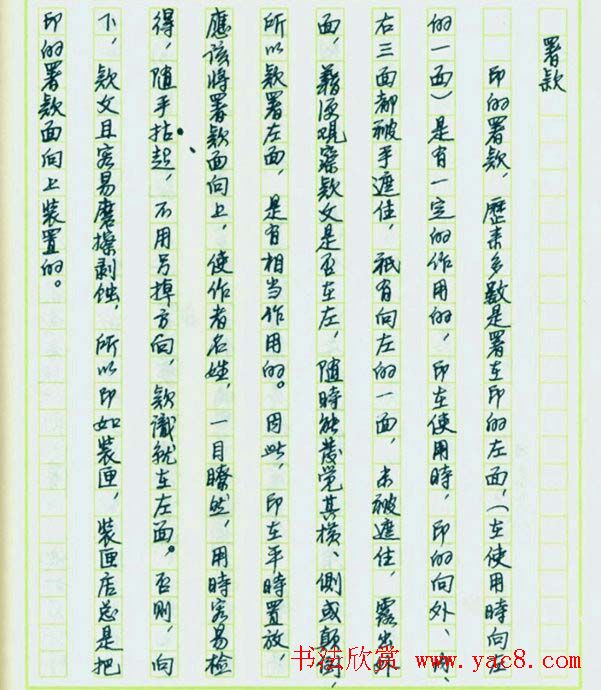 署款
印的署款，歷来多数是署在印的左面，（在使用時向左
的一面）是有一定的作用的，印在使用時，印的向外、向
右三面都被手遮住，祇有向左的一面，未被遮住，露出外
面，藉便观察款文是否在左，随時能發觉其横、側或顛倒，
所以款署左面，是有相当作用的。因此，印在平時置放，
應该将署款面向上，使作者名姓，一目瞭然，用時容易检
得，随手拈起，不用另掉方向，款識就在左面。否则，向
下，款文且容易磨擦剥蚀，所以印如装匣，装匣店总是把
印的署款面向上装置的。
书法欣赏 www.yac8.com